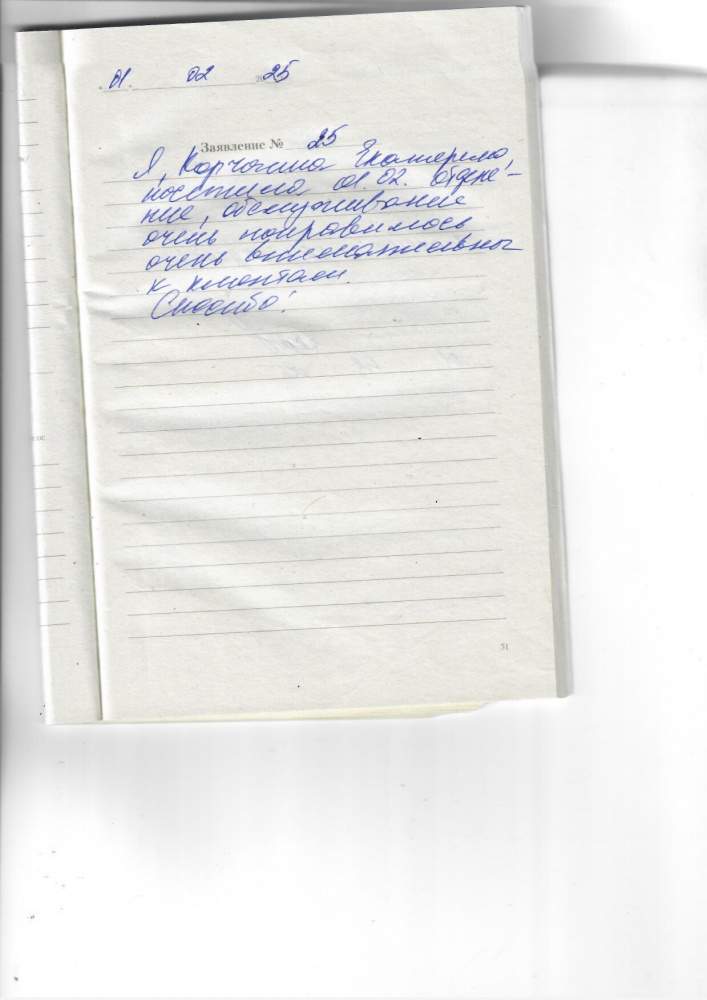 01. 02 2025
Заявление № 25
Я, Корчагина Екатерина,
посетила 01.02. отделе-
ние, обслуживание
очень понравилось
очень внимательны
к клиентам.
Спасибо!
31